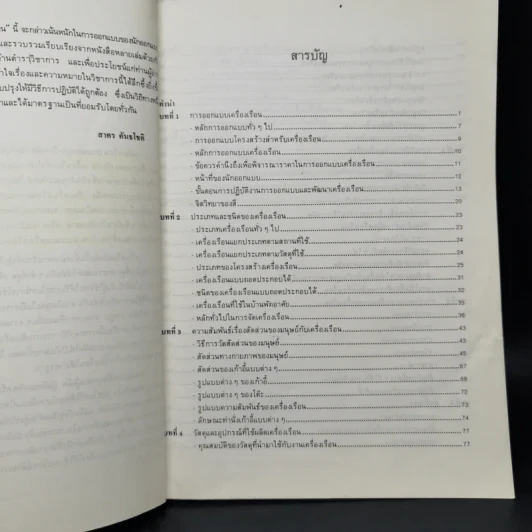 น" นี้ จะกล่าวเน้นหนักในการออกแบบของนักออกแบบ
และรวบรวมเรียบเรียงจากหนังสือหลายเล่มด้วยกัน
ด้านตำราวิชาการ และเพื่อประโยชน์แก่ท่านผู้อ่าน
าใจเรื่องและความหมายในวิชาการนี้ได้ดียิ่งขึ้น
ปรุงให้มีวิธีการปฏิบัติได้ถูกต้อง ซึ่งเป็นวิธีทางหนึ่ง
าและได้มาตรฐานเป็นที่ยอมรับโดยทั่วกัน
สาคร คันธโชติ
สารบัญ
คำนำ
บทที่ 1 การออกแบบเครื่องเรือน 1
- หลักการออกแบบทั่ว ๆ ไป 7
- การออกแบบโครงสร้างสำหรับเครื่องเรือน 9
- หลักการออกแบบเครื่องเรือน 10
- ข้อควรคำนึงถึงเพื่อพิจารณาราคาในการออกแบบเครื่องเรือน 11
- หน้าที่ของนักออกแบบ 12
- ขั้นตอนการปฏิบัติงานการออกแบบและพัฒนาเครื่องเรือน 13
- จิตวิทยาของสี 20
บทที่ 2 ประเภทและชนิดของเครื่องเรือน 23
- ประเภทเครื่องเรือนทั่ว ๆ ไป 23
- เครื่องเรือนแยกประเภทตามสถานที่ใช้ 24
- เครื่องเรือนแยกประเภทตามวัสดุที่ใช้ 24
- ประเภทของโครงสร้างเครื่องเรือน
- เครื่องเรือนแบบถอดประกอบได้ 31
- ชนิดของเครื่องเรือนแบบถอดประกอบได้ 32
- เครื่องเรือนที่ใช้ในบ้านพักอาศัย 35
- หลักทั่วไปในการจัดเครื่องเรือน 36
บทที่ 3 ความสัมพันธ์เรื่องสัดส่วนของมนุษย์กับเครื่องเรือน 43
- วิธีการวัดสัดส่วนของมนุษย์ 43
- สัดส่วนทางกายภาพของมนุษย์ 45
- สัดส่วนของเก้าอี้แบบต่าง ๆ 67
- รูปแบบต่าง ๆ ของเก้าอี้ 69
- รูปแบบต่าง ๆ ของโต๊ะ 72
- รูปแบบความสัมพันธ์ของเครื่องเรือน 73
- ลักษณะท่านั่งเก้าอี้แบบต่าง ๆ 74
บทที่ 4 วัสดุและอุปกรณ์ที่ใช้ผลิตเครื่องเรือน 77
- คุณสมบัติของวัสดุที่นำมาใช้กับงานเครื่องเรือน 77